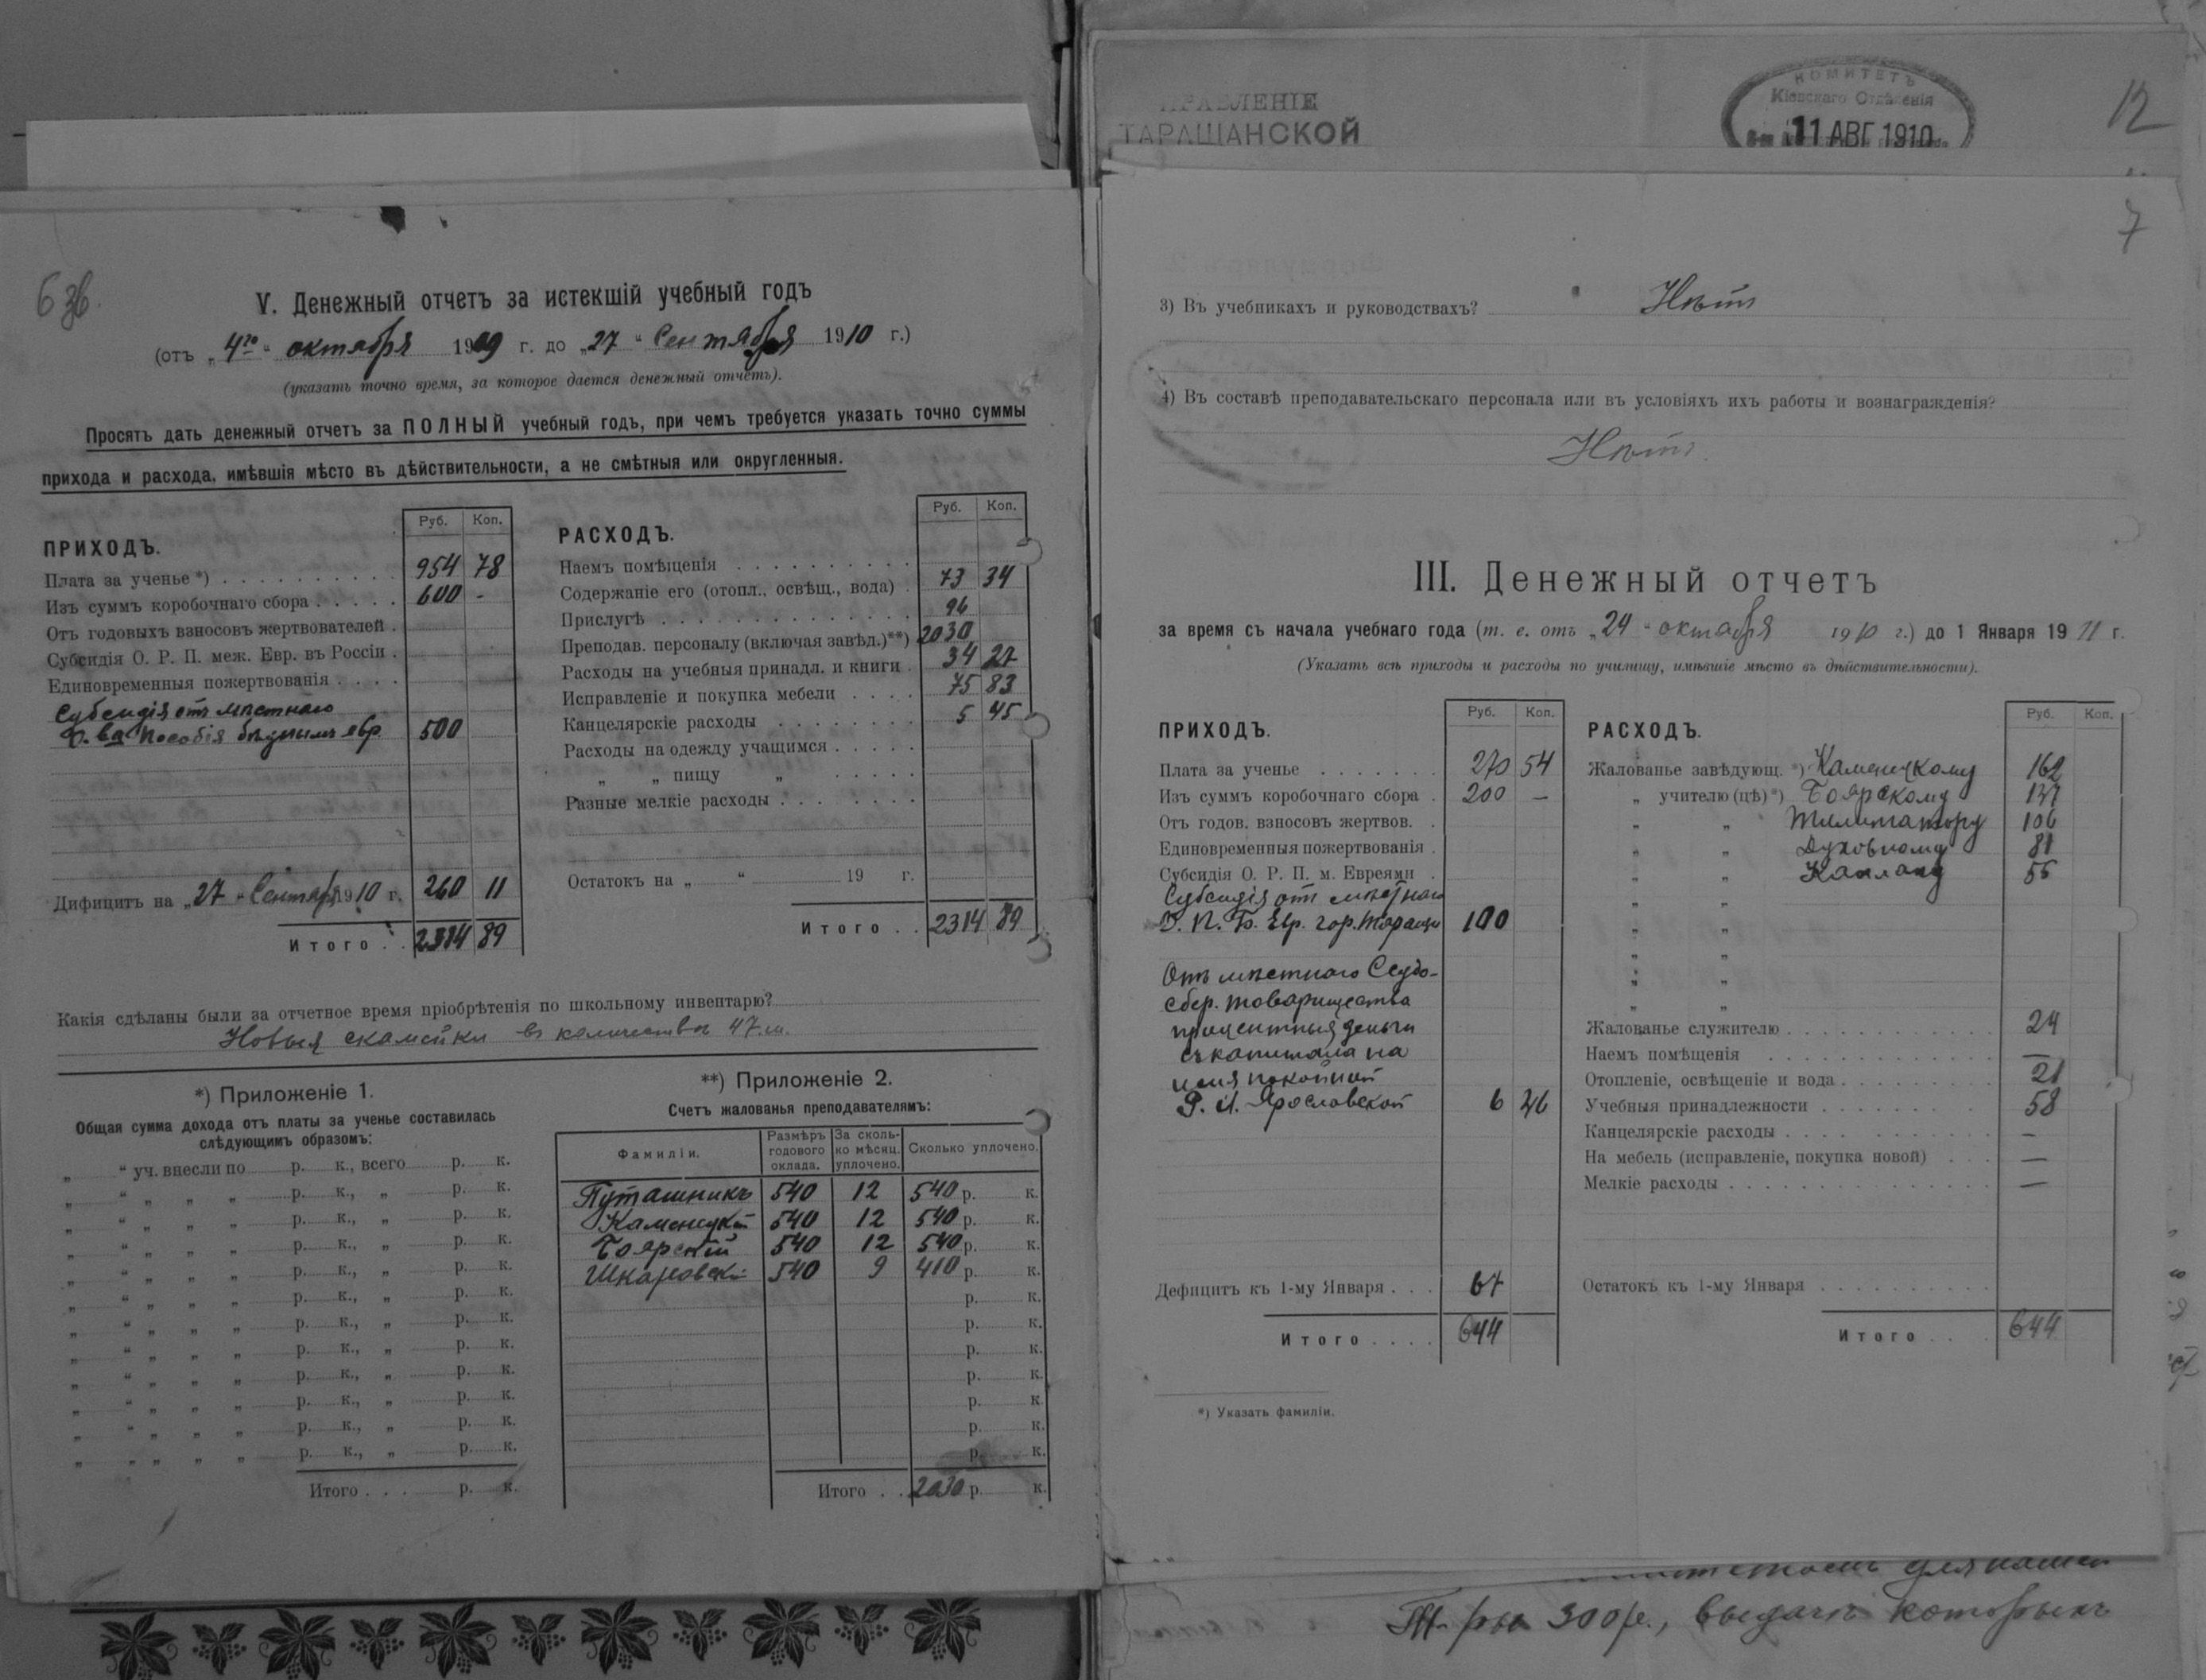 6 зв.
V. Денежный отчетъ за истекшій учебный годъ
(отъ „4го“ октября 1909 г. до „27“ Сентября 1910 г.)
(указать точно время, за которое дается денежный отчетъ).
Просятъ дать денежный отчетъ за ПОЛНЫЙ учебный годъ, при чемъ требуется указать точно суммы
прихода и расхода, имѣвшія мѣсто въ дѣйствительности, а не смѣтныя или округленныя.
ПРИХОДЪ. Руб. Коп.
Плата за ученье *) 954 78
Изъ суммъ коробочнаго сбора 600 -
Отъ годовыхъ взносовъ жертвователей
Субсидія О. Р. П. меж. Евр. въ Россіи
Единовременныя пожертвованія
Субсидія отъ мѣстнаго
О-ва пособія бѣднымъ евр. 500
Дифицитъ на „27“ Сентября 1910 г. 260 11
Итого 2314 89
РАСХОДЪ. Руб. Коп.
Наемъ помѣщенія
Содержаніе его (отопл., освѣщ., вода) 73 34
Прислугѣ 96
Преподав. персоналу (включая завѣд.)**) 2030
Расходы на учебныя принадл. и книги 34 27
Исправленіе и покупка мебели 75 83
Канцелярскіе расходы 5 45
Расходы на одежду учащимся
„ „ пищу „
Разные мелкіе расходы
Остатокъ на „ “ 19 г.
Итого 2314 89
Какія сдѣланы были за отчетное время пріобрѣтенія по школьному инвентарю?
Новыя скамейки въ количествѣ 47 ш.
*) Приложеніе 1.
Общая сумма дохода отъ платы за ученье составилась
слѣдующимъ образомъ:
„ “ уч. внесли по р. к., всего р. к.
„ “ „ „ „ р. к., „ р. к.
„ “ „ „ „ р. к., „ р. к.
„ “ „ „ „ р. к., „ р. к.
„ “ „ „ „ р. к., „ р. к.
„ “ „ „ „ р. к., „ р. к.
„ “ „ „ „ р. к., „ р. к.
„ “ „ „ „ р. к., „ р. к.
„ “ „ „ „ р. к., „ р. к.
„ “ „ „ „ р. к., „ р. к.
„ “ „ „ „ р. к., „ р. к.
„ “ „ „ „ р. к., „ р. к.
Итого р. к.
**) Приложеніе 2.
Счетъ жалованья преподавателямъ:
Фамиліи. Размѣръ годового оклада. За сколько мѣсяц. уплочено. Сколько уплочено.
Путашникъ 540 12 540 р. к.
Каменецкій 540 12 540 р. к.
Боярскій 540 12 540 р. к.
Шкаровскій 540 9 410 р. к.
р. к.
р. к.
р. к.
р. к.
р. к.
р. к.
р. к.
Итого 2030 р. к.
ПРАВЛЕНІЕ
ТАРАЩАНСКОЙ
КОМИТЕТЪ
Кіевскаго Отдѣленія
11 АВГ 1910
12
7
3) Въ учебникахъ и руководствахъ? Нѣтъ
4) Въ составѣ преподавательскаго персонала или въ условіяхъ ихъ работы и вознагражденія?
Нѣтъ.
III. Денежный отчетъ
за время съ начала учебнаго года (т. е. отъ „24“ октября 1910 г.) до 1 Января 1911 г.
(Указать всѣ приходы и расходы по училищу, имѣвшіе мѣсто въ дѣйствительности).
ПРИХОДЪ. Руб. Коп.
Плата за ученье 270 54
Изъ суммъ коробочнаго сбора 200 —
Отъ годов. взносовъ жертвов.
Единовременныя пожертвованія
Субсидія О. Р. П. м. Евреями
Субсидія отъ мѣстнаго
О. П. Б. Евр. гор. Таращи 100
Отъ мѣстнаго Ссудо-
сбер. товарищества
процентныя деньги
съ капитала на
имя покойной
Р. И. Ярославской 6 46
Дефицитъ къ 1-му Января 67
Итого 644
РАСХОДЪ. Руб. Коп.
Жалованье завѣдующ. *) Каменецкому 162
„ учителю (цѣ) *) Боярскому 137
„ „ 106
„ „ Духовному 81
„ „ Каплану 55
„ „
„ „
„ „
„ „
„ „
Жалованье служителю 24
Наемъ помѣщенія —
Отопленіе, освѣщеніе и вода 21
Учебныя принадлежности 58
Канцелярскіе расходы —
На мебель (исправленіе, покупка новой) —
Мелкіе расходы —
Остатокъ къ 1-му Января
Итого 644
*) Указать фамиліи.
300 р., выдачи которыхъ